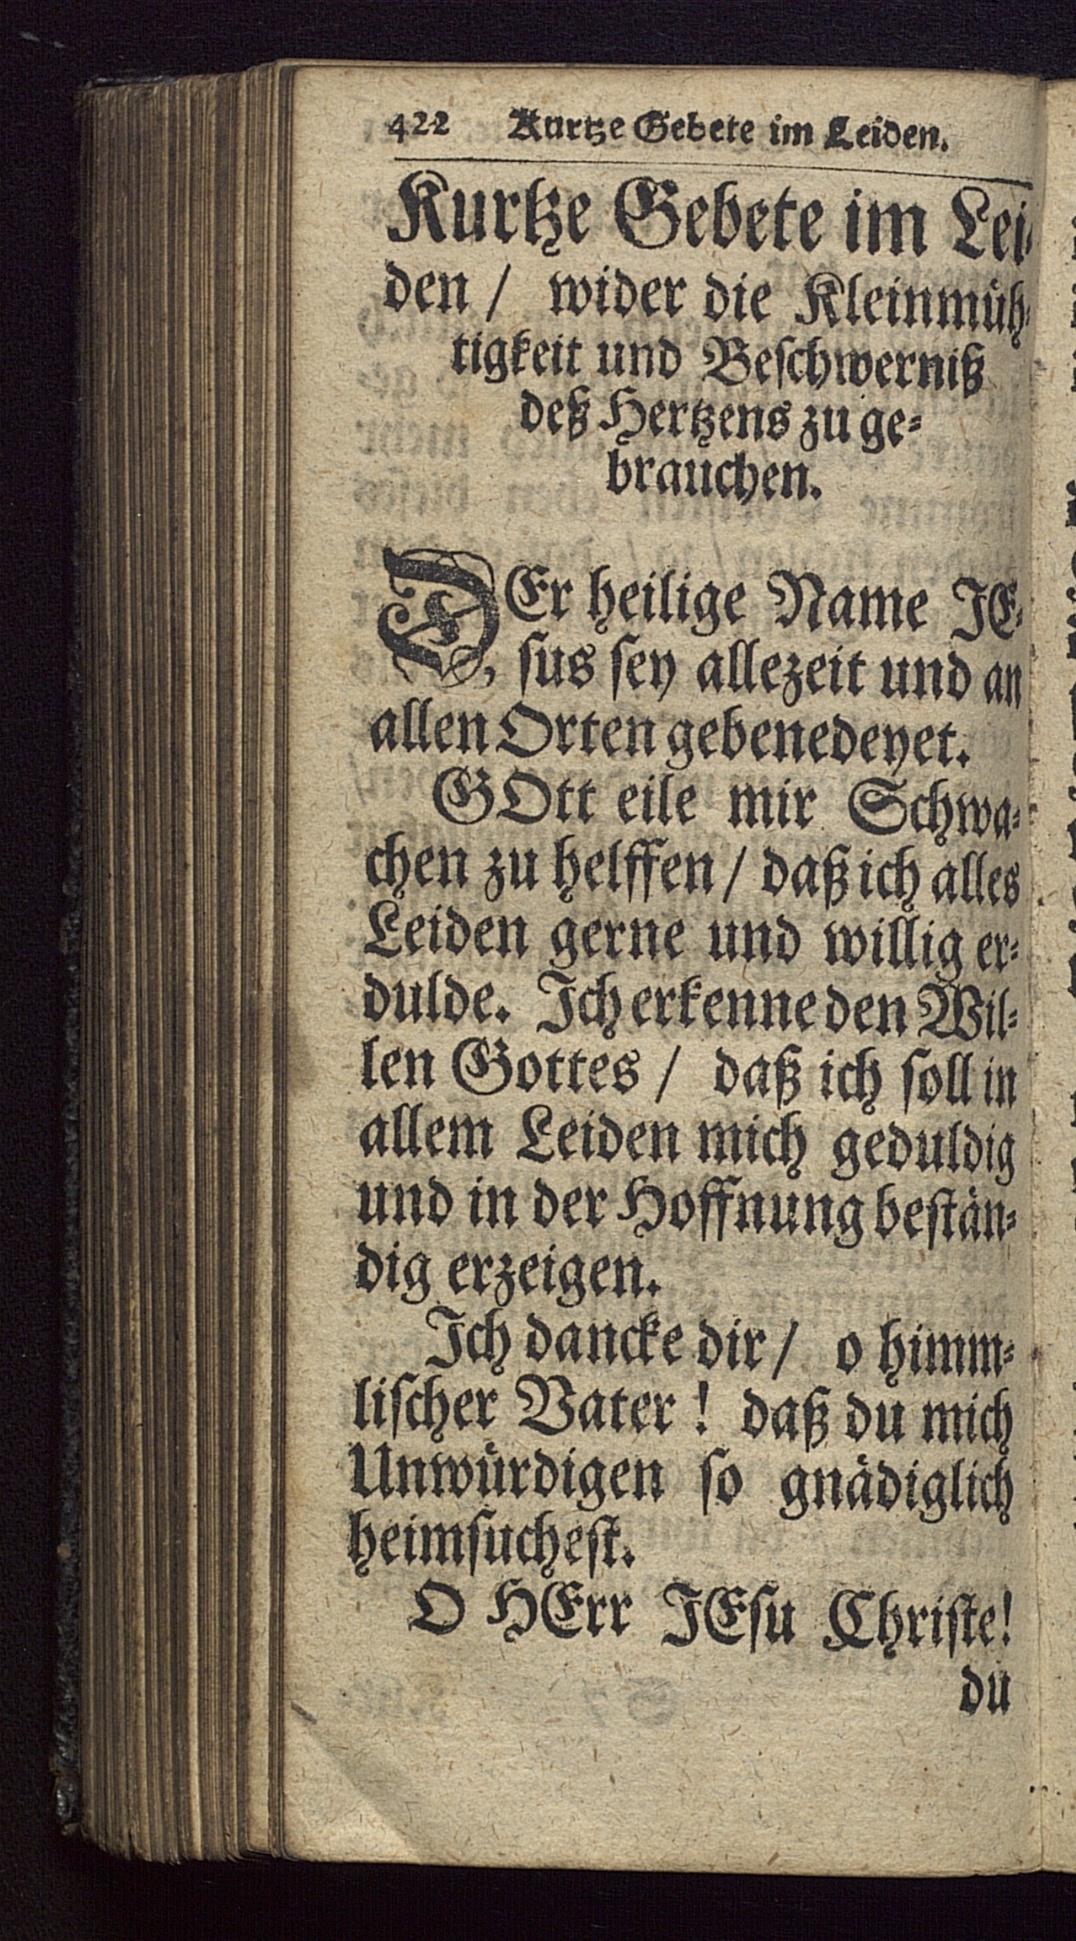 422 Kurtze Gebete im Leiden.
Kurtze Gebete im Lei⸗
den / wider die Kleinmüh⸗
tigkeit und Beſchwerniß
deß Hertzens zu ge⸗
brauchen.
DEr heilige Name JE⸗
ſus ſey allezeit und an
allen Orten gebenedeyet.
GOtt eile mir Schwa⸗
chen zu helffen / daß ich alles
Leiden gerne und willig er⸗
dulde. Ich erkenne den Wil⸗
len Gottes / daß ich ſoll in
allem Leiden mich geduldig
und in der Hoffnung beſtän⸗
dig erzeigen.
Ich dancke dir / o himm⸗
liſcher Vater ! daß du mich
Unwürdigen ſo gnädiglich
heimſucheſt.
O HErr JEſu Chriſte!
du